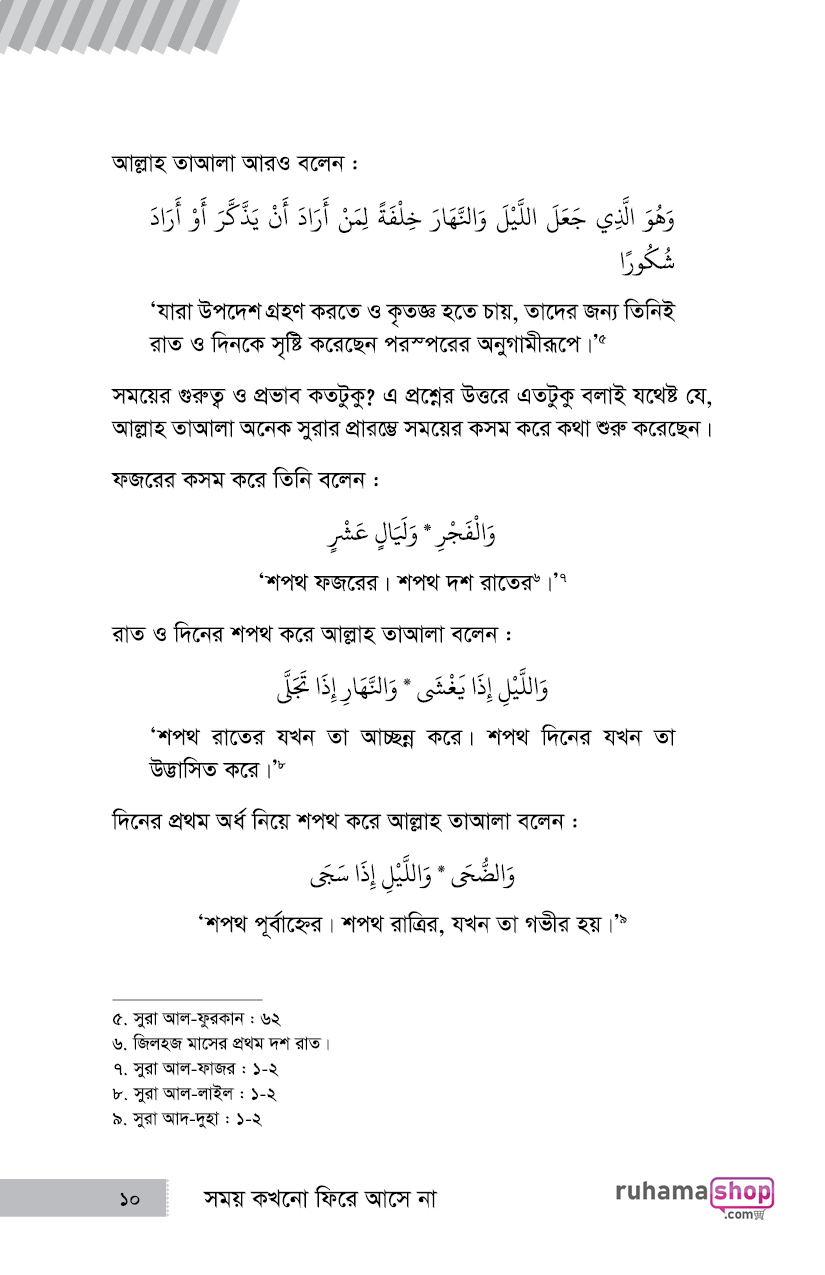 আল্লাহ তাআলা আরও বলেন :
وَهُوَ الَّذِي جَعَلَ اللَّيْلَ وَالنَّهَارَ خِلْفَةً لِمَنْ أَرَادَ أَنْ يَذَّكَّرَ أَوْ أَرَادَ
شُكُورًا
‘যারা উপদেশ গ্রহণ করতে ও কৃতজ্ঞ হতে চায়, তাদের জন্য তিনিই
রাত ও দিনকে সৃষ্টি করেছেন পরস্পরের অনুগামীরূপে।’৫
সময়ের গুরুত্ব ও প্রভাব কতটুকু? এ প্রশ্নের উত্তরে এতটুকু বলাই যথেষ্ট যে,
আল্লাহ তাআলা অনেক সুরার প্রারম্ভে সময়ের কসম করে কথা শুরু করেছেন।
ফজরের কসম করে তিনি বলেন :
وَالْفَجْرِ * وَلَيَالٍ عَشْرٍ
‘শপথ ফজরের। শপথ দশ রাতের৬।’৭
রাত ও দিনের শপথ করে আল্লাহ তাআলা বলেন :
وَاللَّيْلِ إِذَا يَغْشَى * وَالنَّهَارِ إِذَا تَجَلَّى
‘শপথ রাতের যখন তা আচ্ছন্ন করে। শপথ দিনের যখন তা
উদ্ভাসিত করে।’৮
দিনের প্রথম অর্ধ নিয়ে শপথ করে আল্লাহ তাআলা বলেন :
وَالضُّحَى * وَاللَّيْلِ إِذَا سَجَى
‘শপথ পূর্বাহ্নের। শপথ রাত্রির, যখন তা গভীর হয়।’৯
৫. সুরা আল-ফুরকান : ৬২
৬. জিলহজ মাসের প্রথম দশ রাত।
৭. সুরা আল-ফাজর : ১-২
৮. সুরা আল-লাইল : ১-২
৯. সুরা আদ-দুহা : ১-২
১০ সময় কখনো ফিরে আসে না
ruhamashop
.com